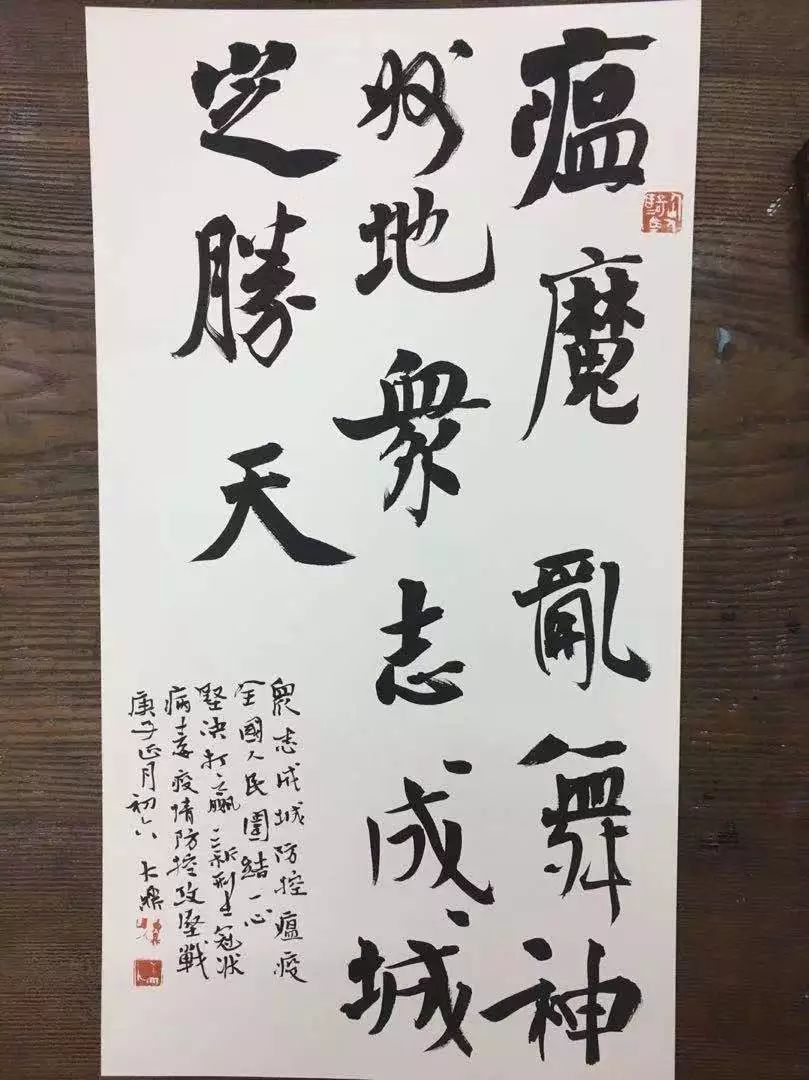 瘟魔亂舞神
州地衆志成城
定勝天
衆志成城防控瘟疫
全國人民團結一心
堅決打贏新型冠狀
病毒疫情防控攻堅戰
庚子正月初六 大鼎